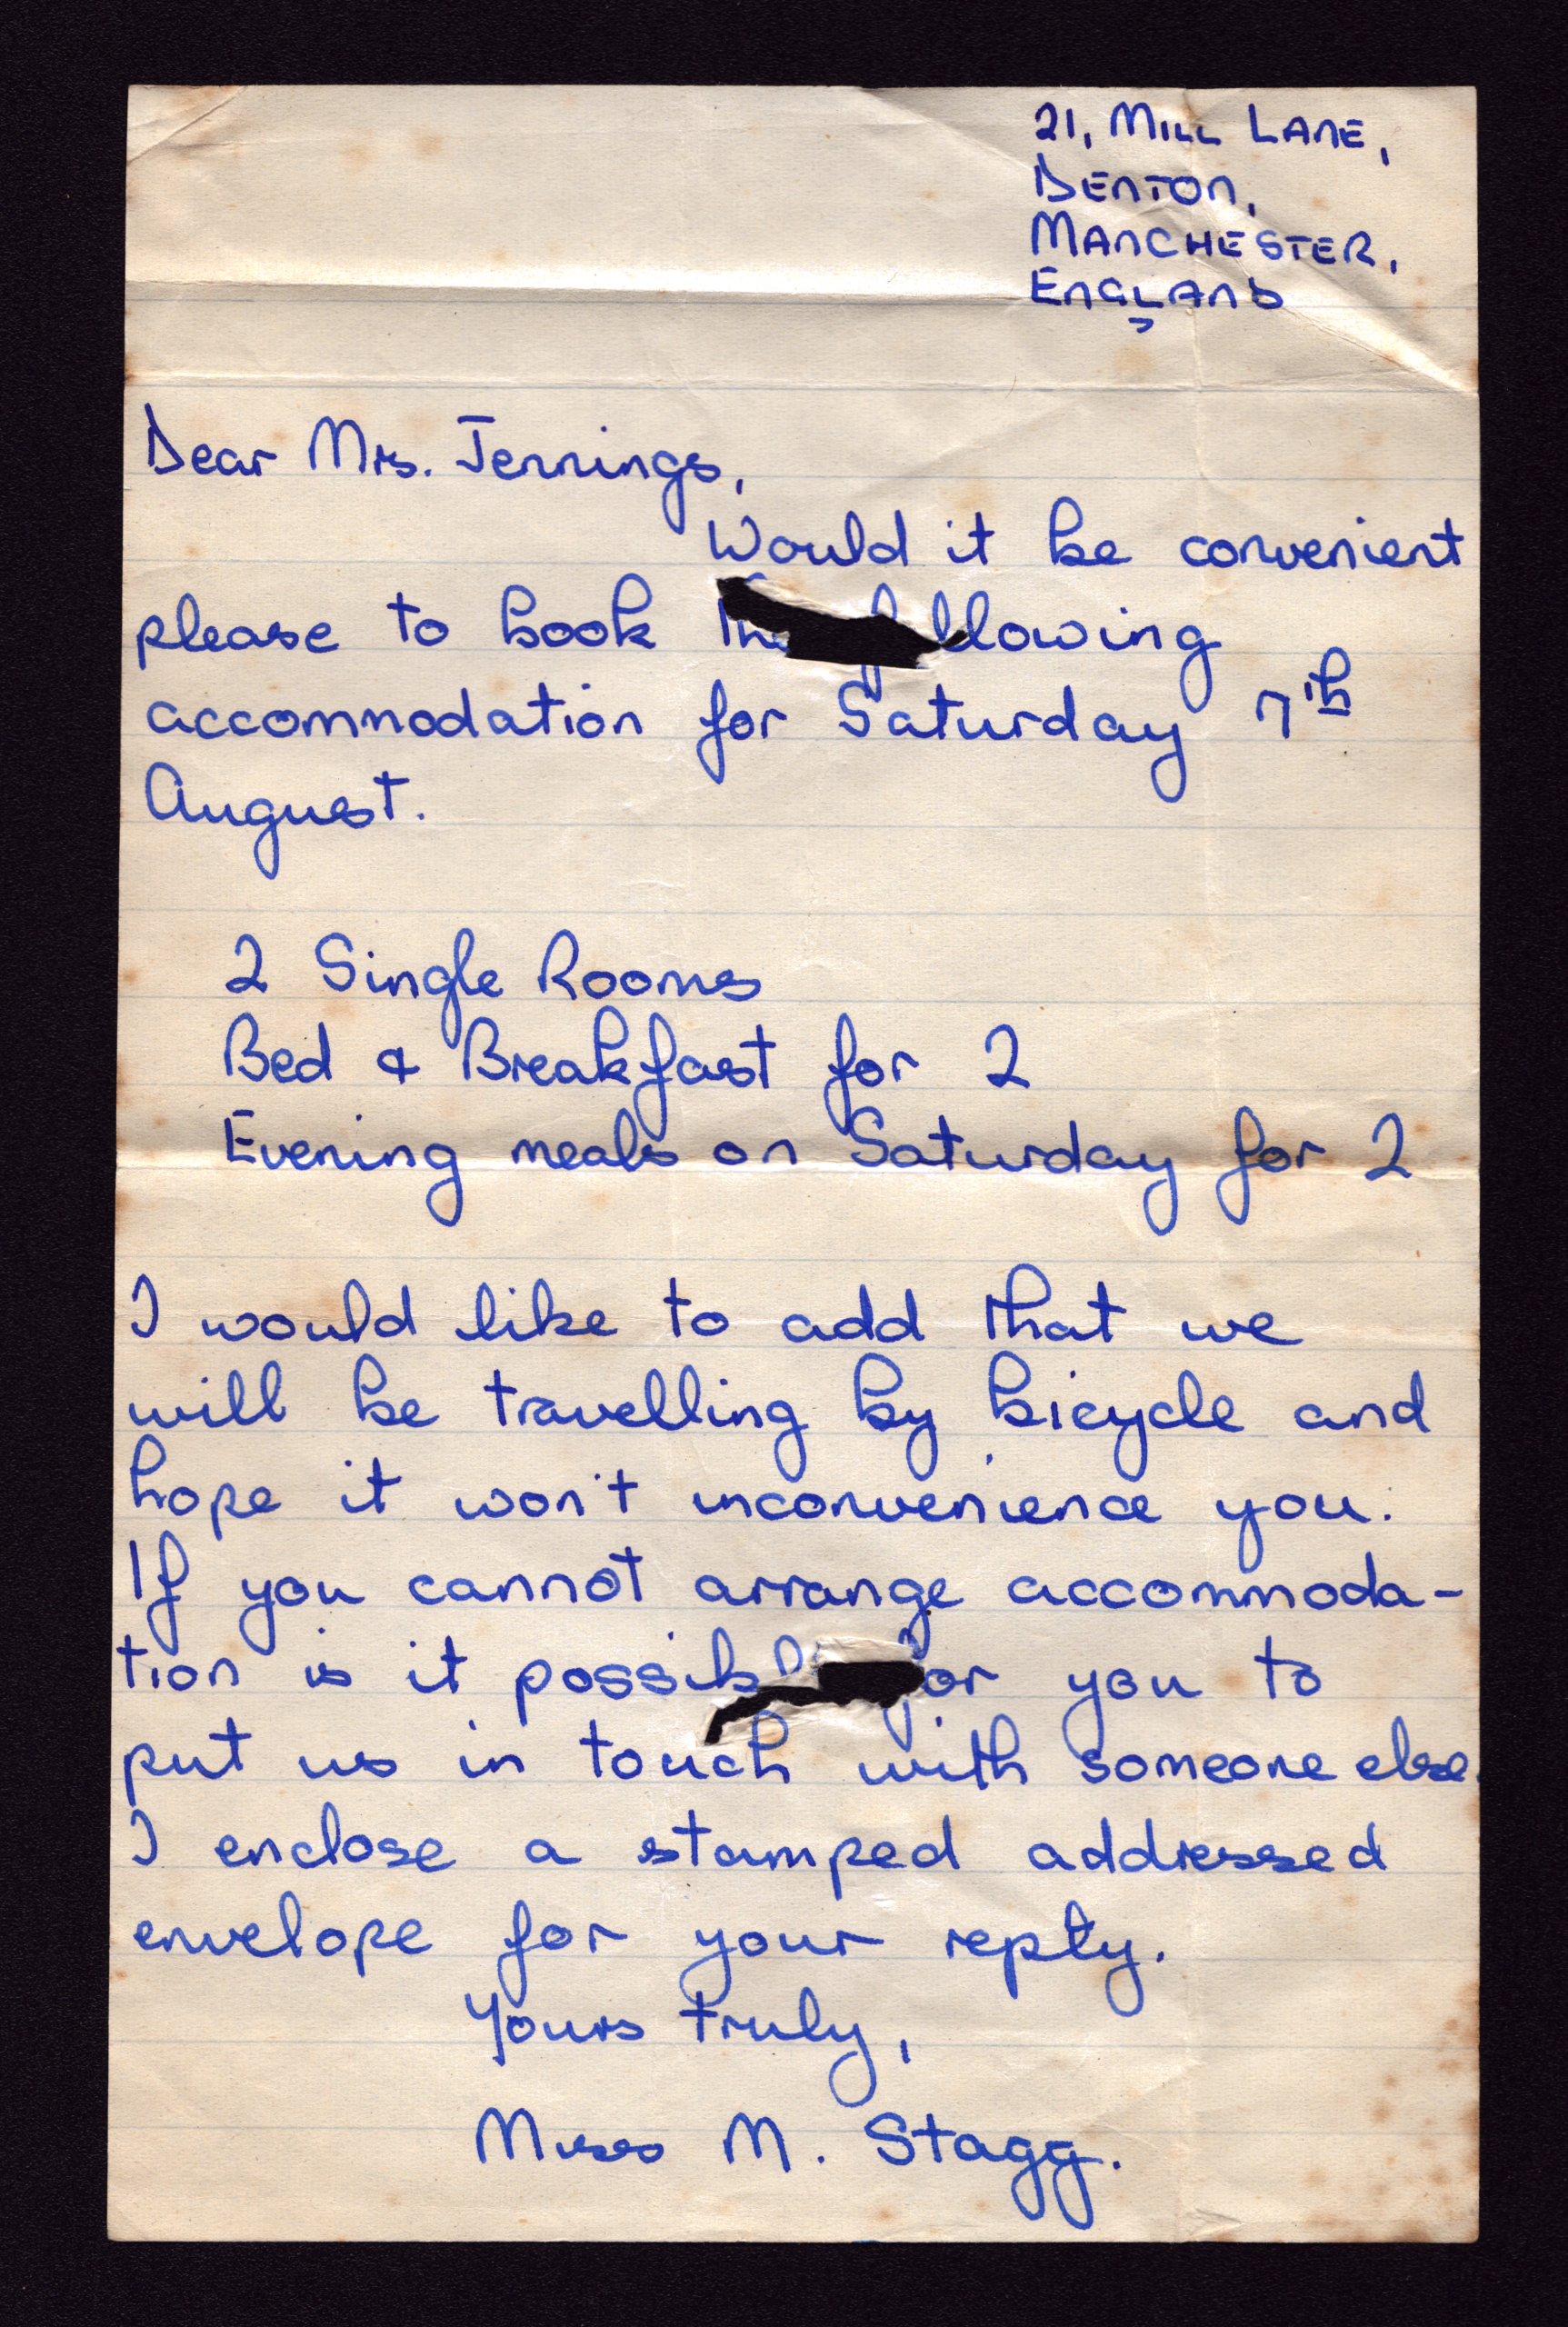 21, MILL LANE,
DENTON,
MANCHESTER,
ENGLAND
Dear Mrs. Jennings,
Would it be convenient
please to book the following
accommodation for Saturday 7th
August.
2 Single Rooms
Bed & Breakfast for 2
Evening meals on Saturday for 2
I would like to add that we
will be travelling by bicycle and
hope it won't inconvenience you.
If you cannot arrange accommoda-
tion is it possible for you to
put us in touch with someone else.
I enclose a stamped addressed
envelope for your reply.
Yours truly,
Miss M. Stagg.